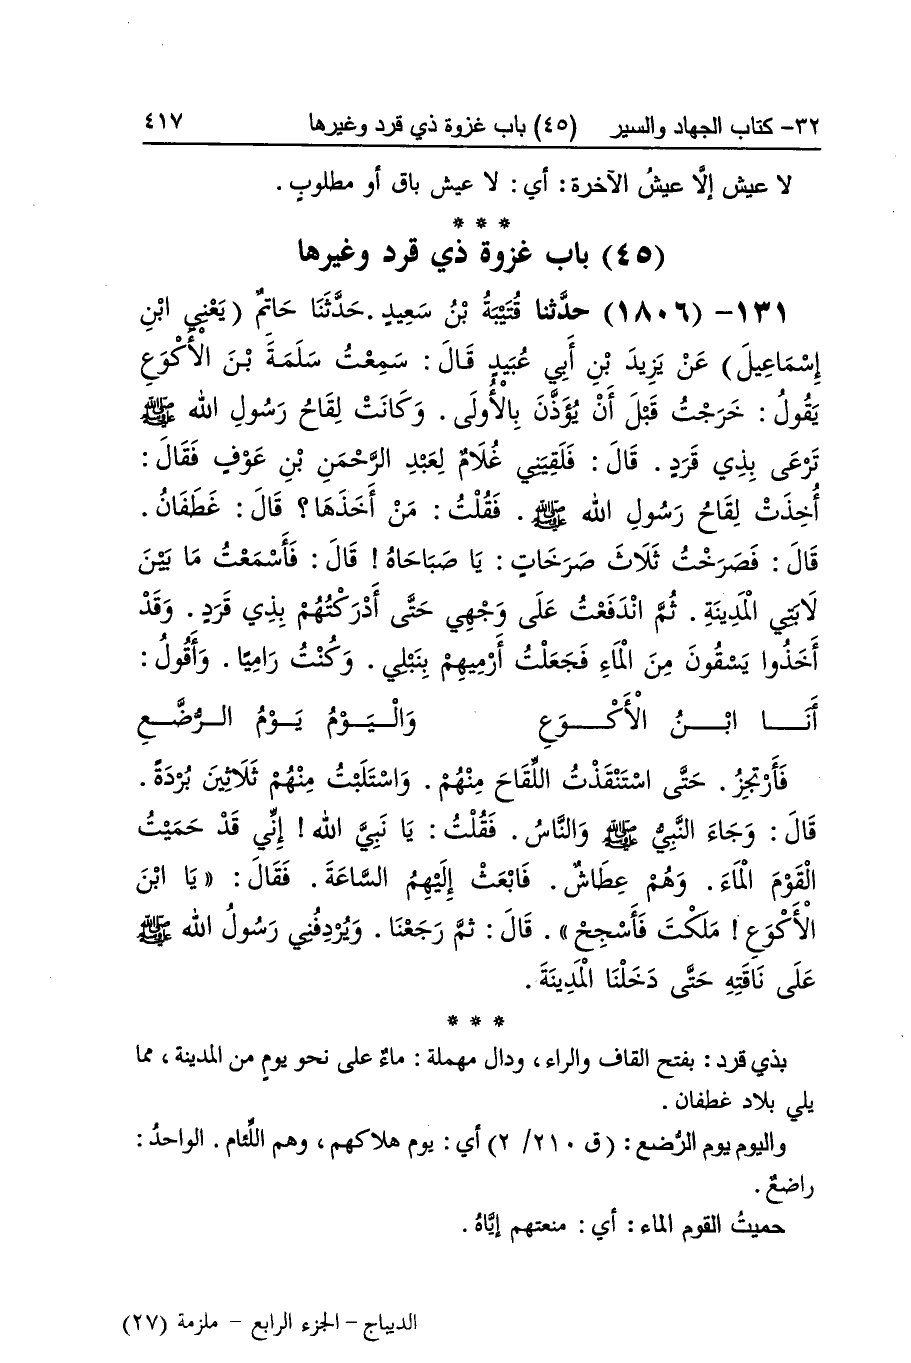 ٣٢- كتاب الجهاد والسير (٤٥) باب غزوة ذي قرد وغيرها ٤١٧
لا عيش إلَّا عيشُ الآخرة : أي : لا عيش باق أو مطلوبٍ .
* * *
(٤٥) باب غزوة ذي قرد وغيرها
١٣١- (١٨٠٦) حدَّثنا قُتَيْبَةُ بْنُ سَعِيدٍ . حَدَّثَنَا حَاتِمٌ (يَعْنِي ابْنَ
إِسْمَاعِيلَ) عَنْ يَزِيدَ بْنِ أَبِي عُبَيْدٍ قَالَ : سَمِعْتُ سَلَمَةَ بْنَ الأَكْوَعِ
يَقُولُ : خَرَجْتُ قَبْلَ أَنْ يُؤَذَّنَ بِالْأُولَى . وَكَانَتْ لِقَاحُ رَسُولِ الله ﷺ
تَرْعَى بِذِي قَرَدٍ . قَالَ : فَلَقِيَنِي غُلَامٌ لِعَبْدِ الرَّحْمَنِ بْنِ عَوْفٍ فَقَالَ :
أُخِذَتْ لِقَاحُ رَسُولِ الله ﷺ . فَقُلْتُ : مَنْ أَخَذَهَا ؟ قَالَ : غَطَفَانُ .
قَالَ : فَصَرَخْتُ ثَلَاثَ صَرَخَاتٍ : يَا صَبَاحَاهُ ! قَالَ : فَأَسْمَعْتُ مَا بَيْنَ
لَابَتِي الْمَدِينَةِ . ثُمَّ انْدَفَعْتُ عَلَى وَجْهِي حَتَّى أَدْرَكْتُهُمْ بِذِي قَرَدٍ . وَقَدْ
أَخَذُوا يَسْقُونَ مِنَ الْمَاءِ فَجَعَلْتُ أَرْمِيهِمْ بِنَبْلِي . وَكُنْتُ رَامِيًا . وَأَقُولُ :
أَنَا ابْنُ الْأَكْوَعِ وَالْيَوْمُ يَوْمُ الرُّضَّعِ
فَأَرْتَجِزُ . حَتَّى اسْتَنْقَذْتُ اللِّقَاحَ مِنْهُمْ . وَاسْتَلَبْتُ مِنْهُمْ ثَلَاثِينَ بُرْدَةً .
قَالَ : وَجَاءَ النَّبِيُّ ﷺ وَالنَّاسُ . فَقُلْتُ : يَا نَبِيَّ الله ! إِنِّي قَدْ حَمَيْتُ
الْقَوْمَ الْمَاءَ . وَهُمْ عِطَاشٌ . فَابْعَثْ إِلَيْهِمُ السَّاعَةَ . فَقَالَ : « يَا ابْنَ
الْأَكْوَعِ ! مَلَكْتَ فَأَسْجِحْ » . قَالَ : ثُمَّ رَجَعْنَا . وَيُرْدِفُنِي رَسُولُ الله ﷺ
عَلَى نَاقَتِهِ حَتَّى دَخَلْنَا الْمَدِينَةَ .
* * *
بذي قرد : بفتح القاف والراء ، ودال مهملة : ماءٌ على نحو يومٍ من المدينة ، مما
يلي بلاد غطفان .
واليوم يوم الرُّضع : (ق ٢١٠/ ٢) أي : يوم هلاكهم ، وهم اللِّئام . الواحدُ :
راضعٌ .
حميتُ القوم الماء : أي : منعتهم إيَّاهُ .
الديباج - الجزء الرابع - ملزمة (٢٧)